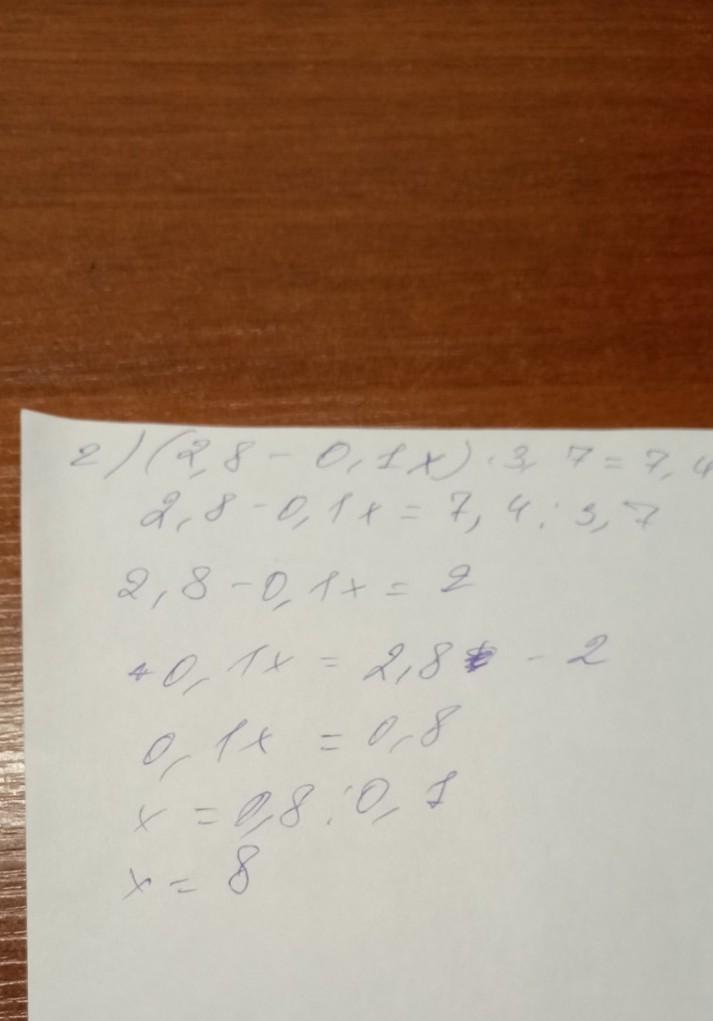 2) (2,8 - 0,1x) · 3,7 = 7,4
2,8 - 0,1x = 7,4 : 3,7
2,8 - 0,1x = 2
+0,1x = 2,8 - 2
0,1x = 0,8
x = 0,8 : 0,1
x = 8